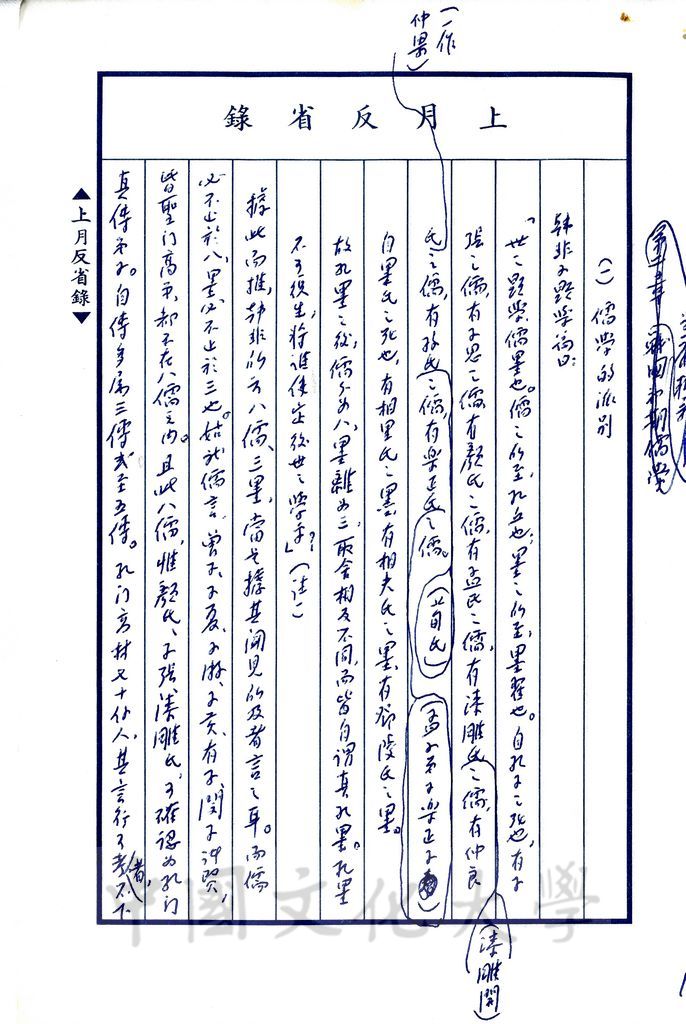 (一作
仲梁)
上月反省錄
第二章 戰國末期儒學
(一) 儒學的派別
韓非子顯學論曰:
「世之顯學儒墨也。儒之所至,孔丘也;墨之所至,墨翟也。自孔子之死也,有子
張之儒,有子思之儒,有顏氏之儒,有孟氏之儒,有漆雕氏之儒,有仲良
氏之儒,有孫氏之儒,有樂正氏之儒。
(荀氏)
(孟子弟子樂正子)
(漆雕開)
自墨氏之死也,有相里氏之墨,有相夫氏之墨,有鄧陵氏之墨。
故孔墨之後,儒分為八,墨離為三,取舍相反不同,而皆自謂真孔墨。孔墨
不可復生,將誰使定後世之學乎?」(註一)
據此而推,韓非所云八儒、三墨,當是據其聞見所及者言之耳。而儒
必不止於八,墨必不止於三也。姑就儒言,曾子、子夏、子游、子貢、有子、閔子冲賢,
皆聖門高弟,都不在八儒之內。且此八儒,惟顏氏、子張、漆雕氏,可確認為孔門
真傳弟子。自傳多屬三傳或至五傳。孔門高材七十余人,其言行可考者,不下
▲上月反省錄▼
中國文化大學